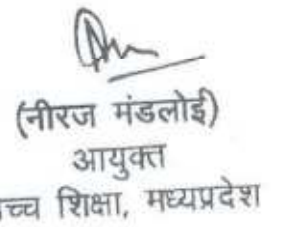 (नीरज मंडलोई)
आयुक्त
च्च शिक्षा, मध्यप्रदेश